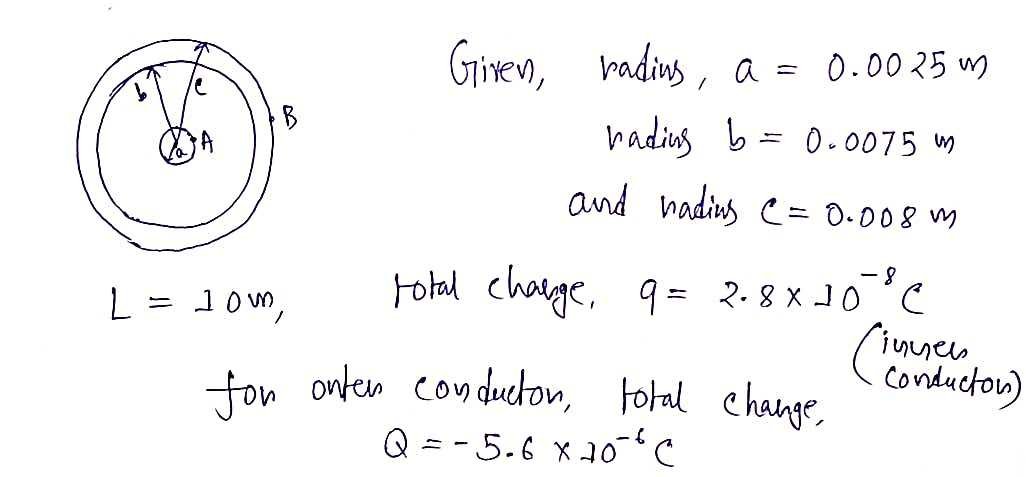 Given, radius, a = 0.0025 m
b c B
a A
radius b = 0.0075 m
and radius c = 0.008 m
L = 10 m, total charge, q = 2.8 × 10⁻⁸ C
(inner conductor)
for outer conductor, total charge,
Q = -5.6 × 10⁻⁶ C